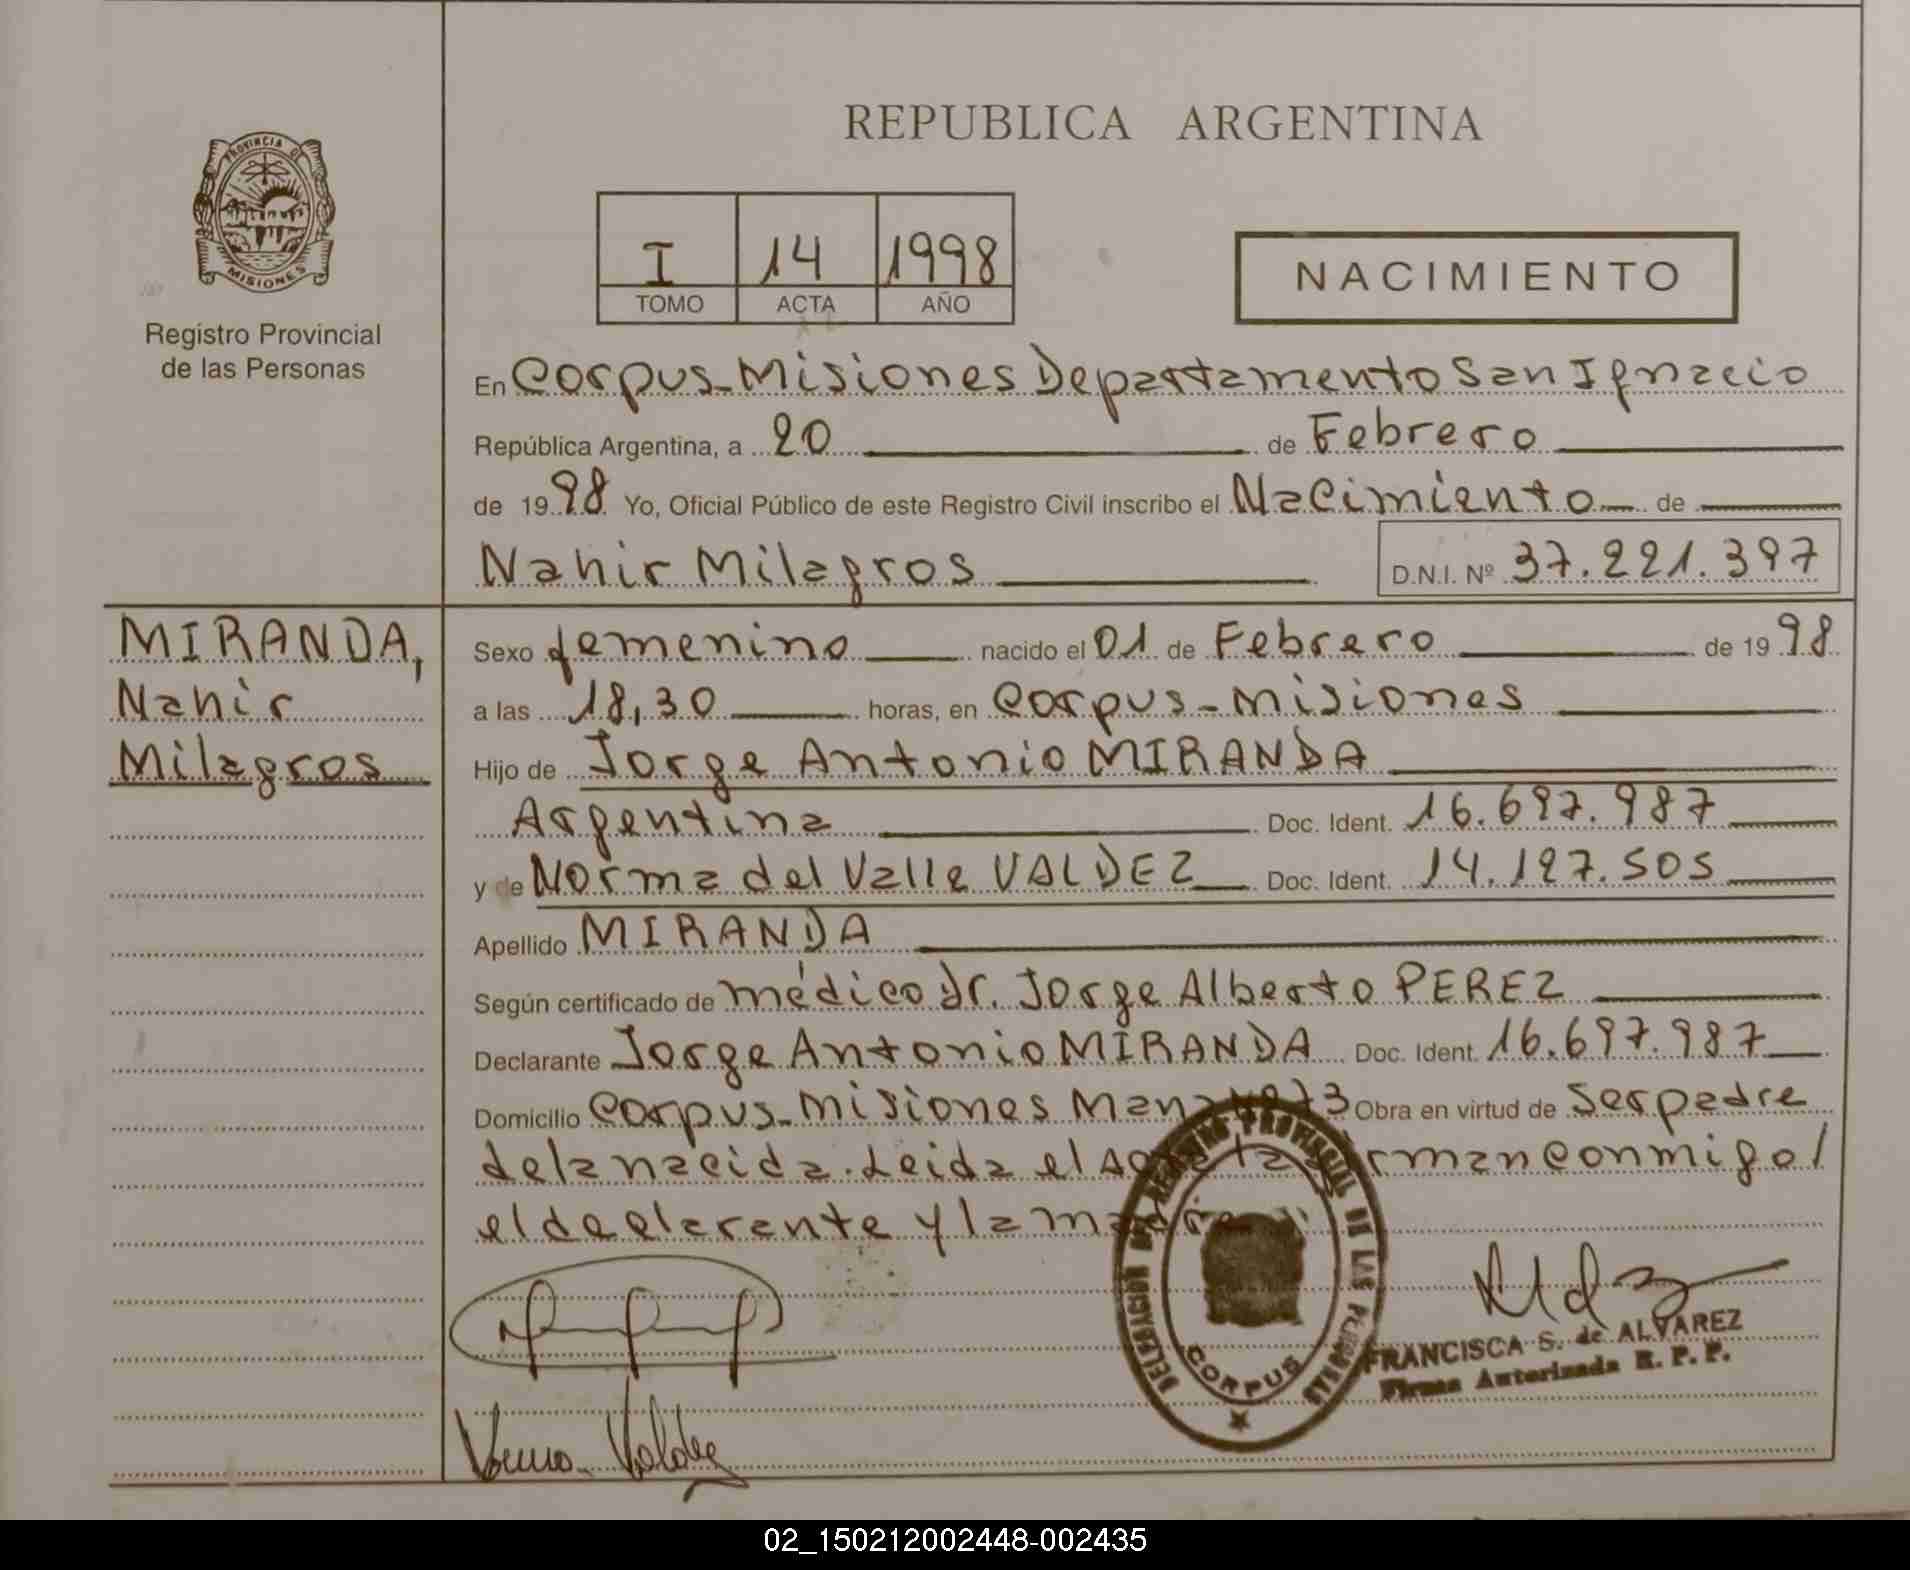 REPUBLICA ARGENTINA
PROVINCIA DE
MISIONES
Registro Provincial
de las Personas
I 14 1998
TOMO ACTA AÑO
NACIMIENTO
En Corpus-Misiones Departamento San Ignacio
República Argentina, a 20 de Febrero
de 1998 Yo, Oficial Público de este Registro Civil inscribo el Nacimiento de
Nahir Milagros D.N.I. Nº 37.221.397
MIRANDA,
Nahir
Milagros
Sexo femenino nacido el 01 de Febrero de 1998
a las 18,30 horas, en Corpus-Misiones
Hijo de Jorge Antonio MIRANDA
Argentina Doc. Ident. 16.697.987
y de Norma del Valle VALDEZ Doc. Ident. 14.127.505
Apellido MIRANDA
Según certificado de médico Dr. Jorge Alberto PEREZ
Declarante Jorge Antonio MIRANDA Doc. Ident. 16.697.987
Domicilio Corpus-Misiones Obra en virtud de ser padre
de la nacida. Leida el Acta la firman conmigo/
el declarante y la madre
DELEGACIÓN DEL REGISTRO PROVINCIAL DE LAS PERSONAS
CORPUS
FRANCISCA S. de ALVAREZ
Firma Autorizada R. P. P.
Norma Valdez
02_150212002448-002435